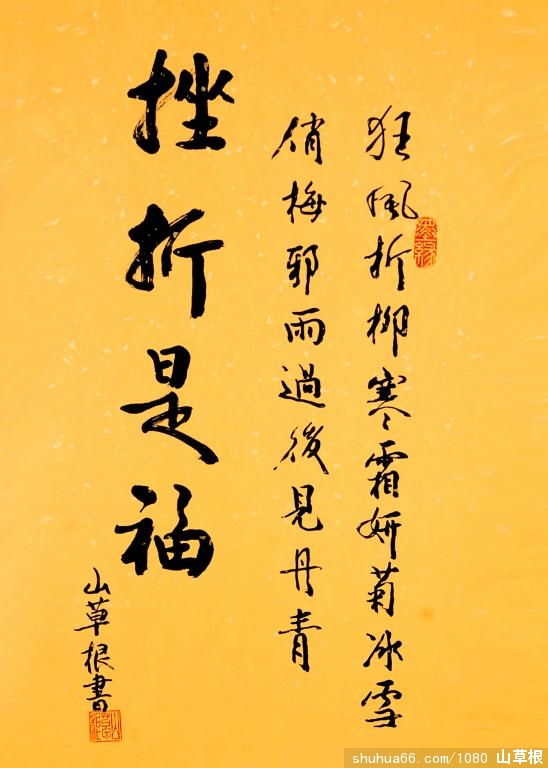 狂风折柳寒霜妍菊冰雪
俏梅邪雨過後見丹青
挫折是福
山草根書
shuhua66.com/1080 山草根